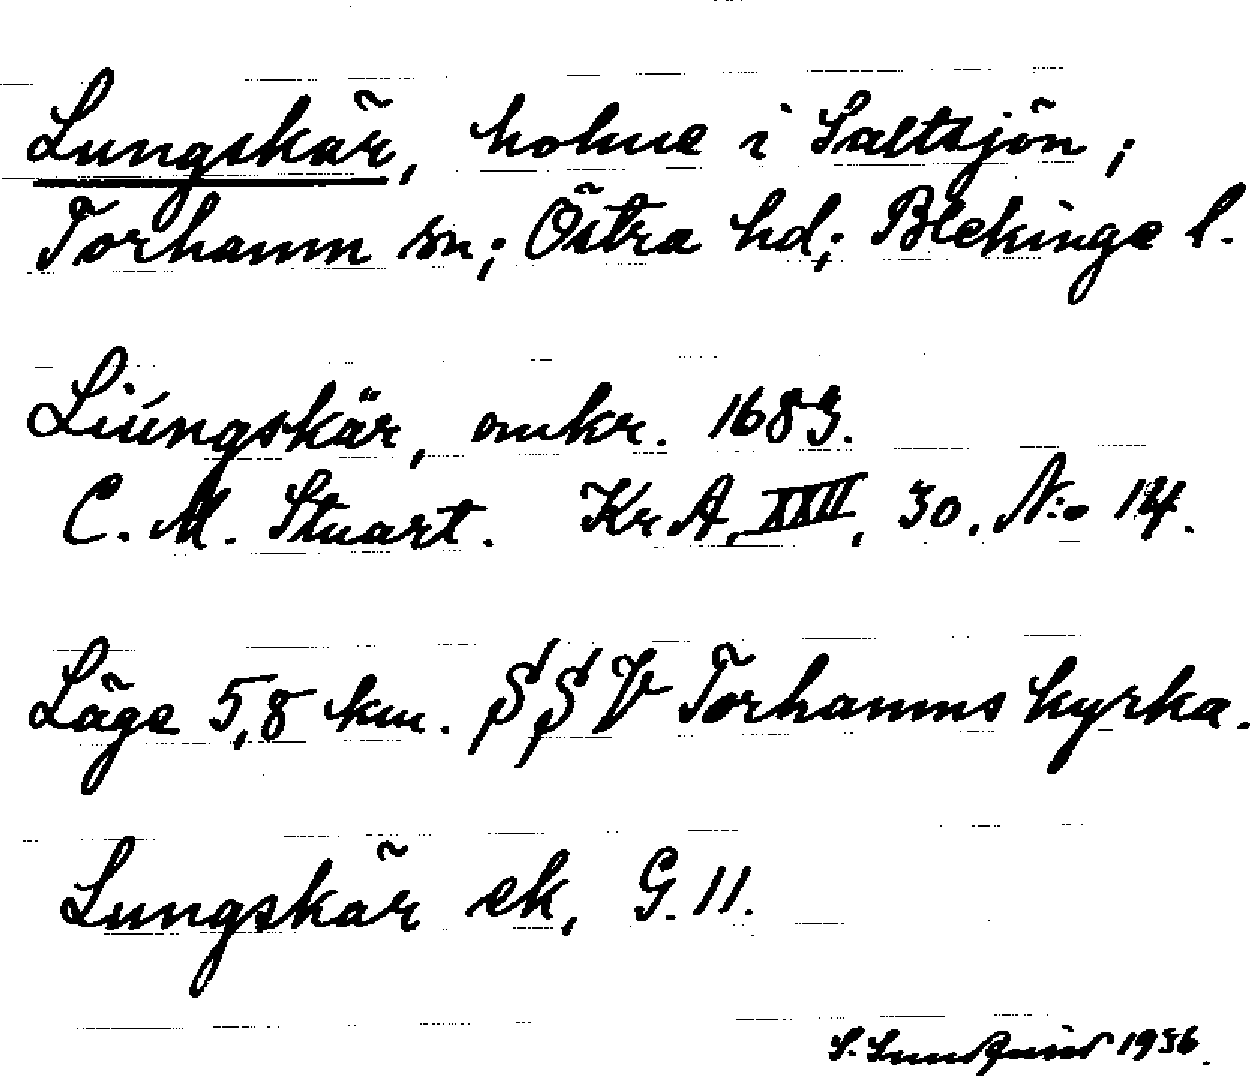 Lungskär, holme i Saltsjön;
Torhamn sn; Östra hd; Blekinge l.
Liúngskär, omkr. 1683.
C. M. Stuart. KrA, XXII, 30. N:o 14.
Läge 5,8 km. SSV Torhamns kyrka.
Lungskär ek, G. 11.
S. 1936.